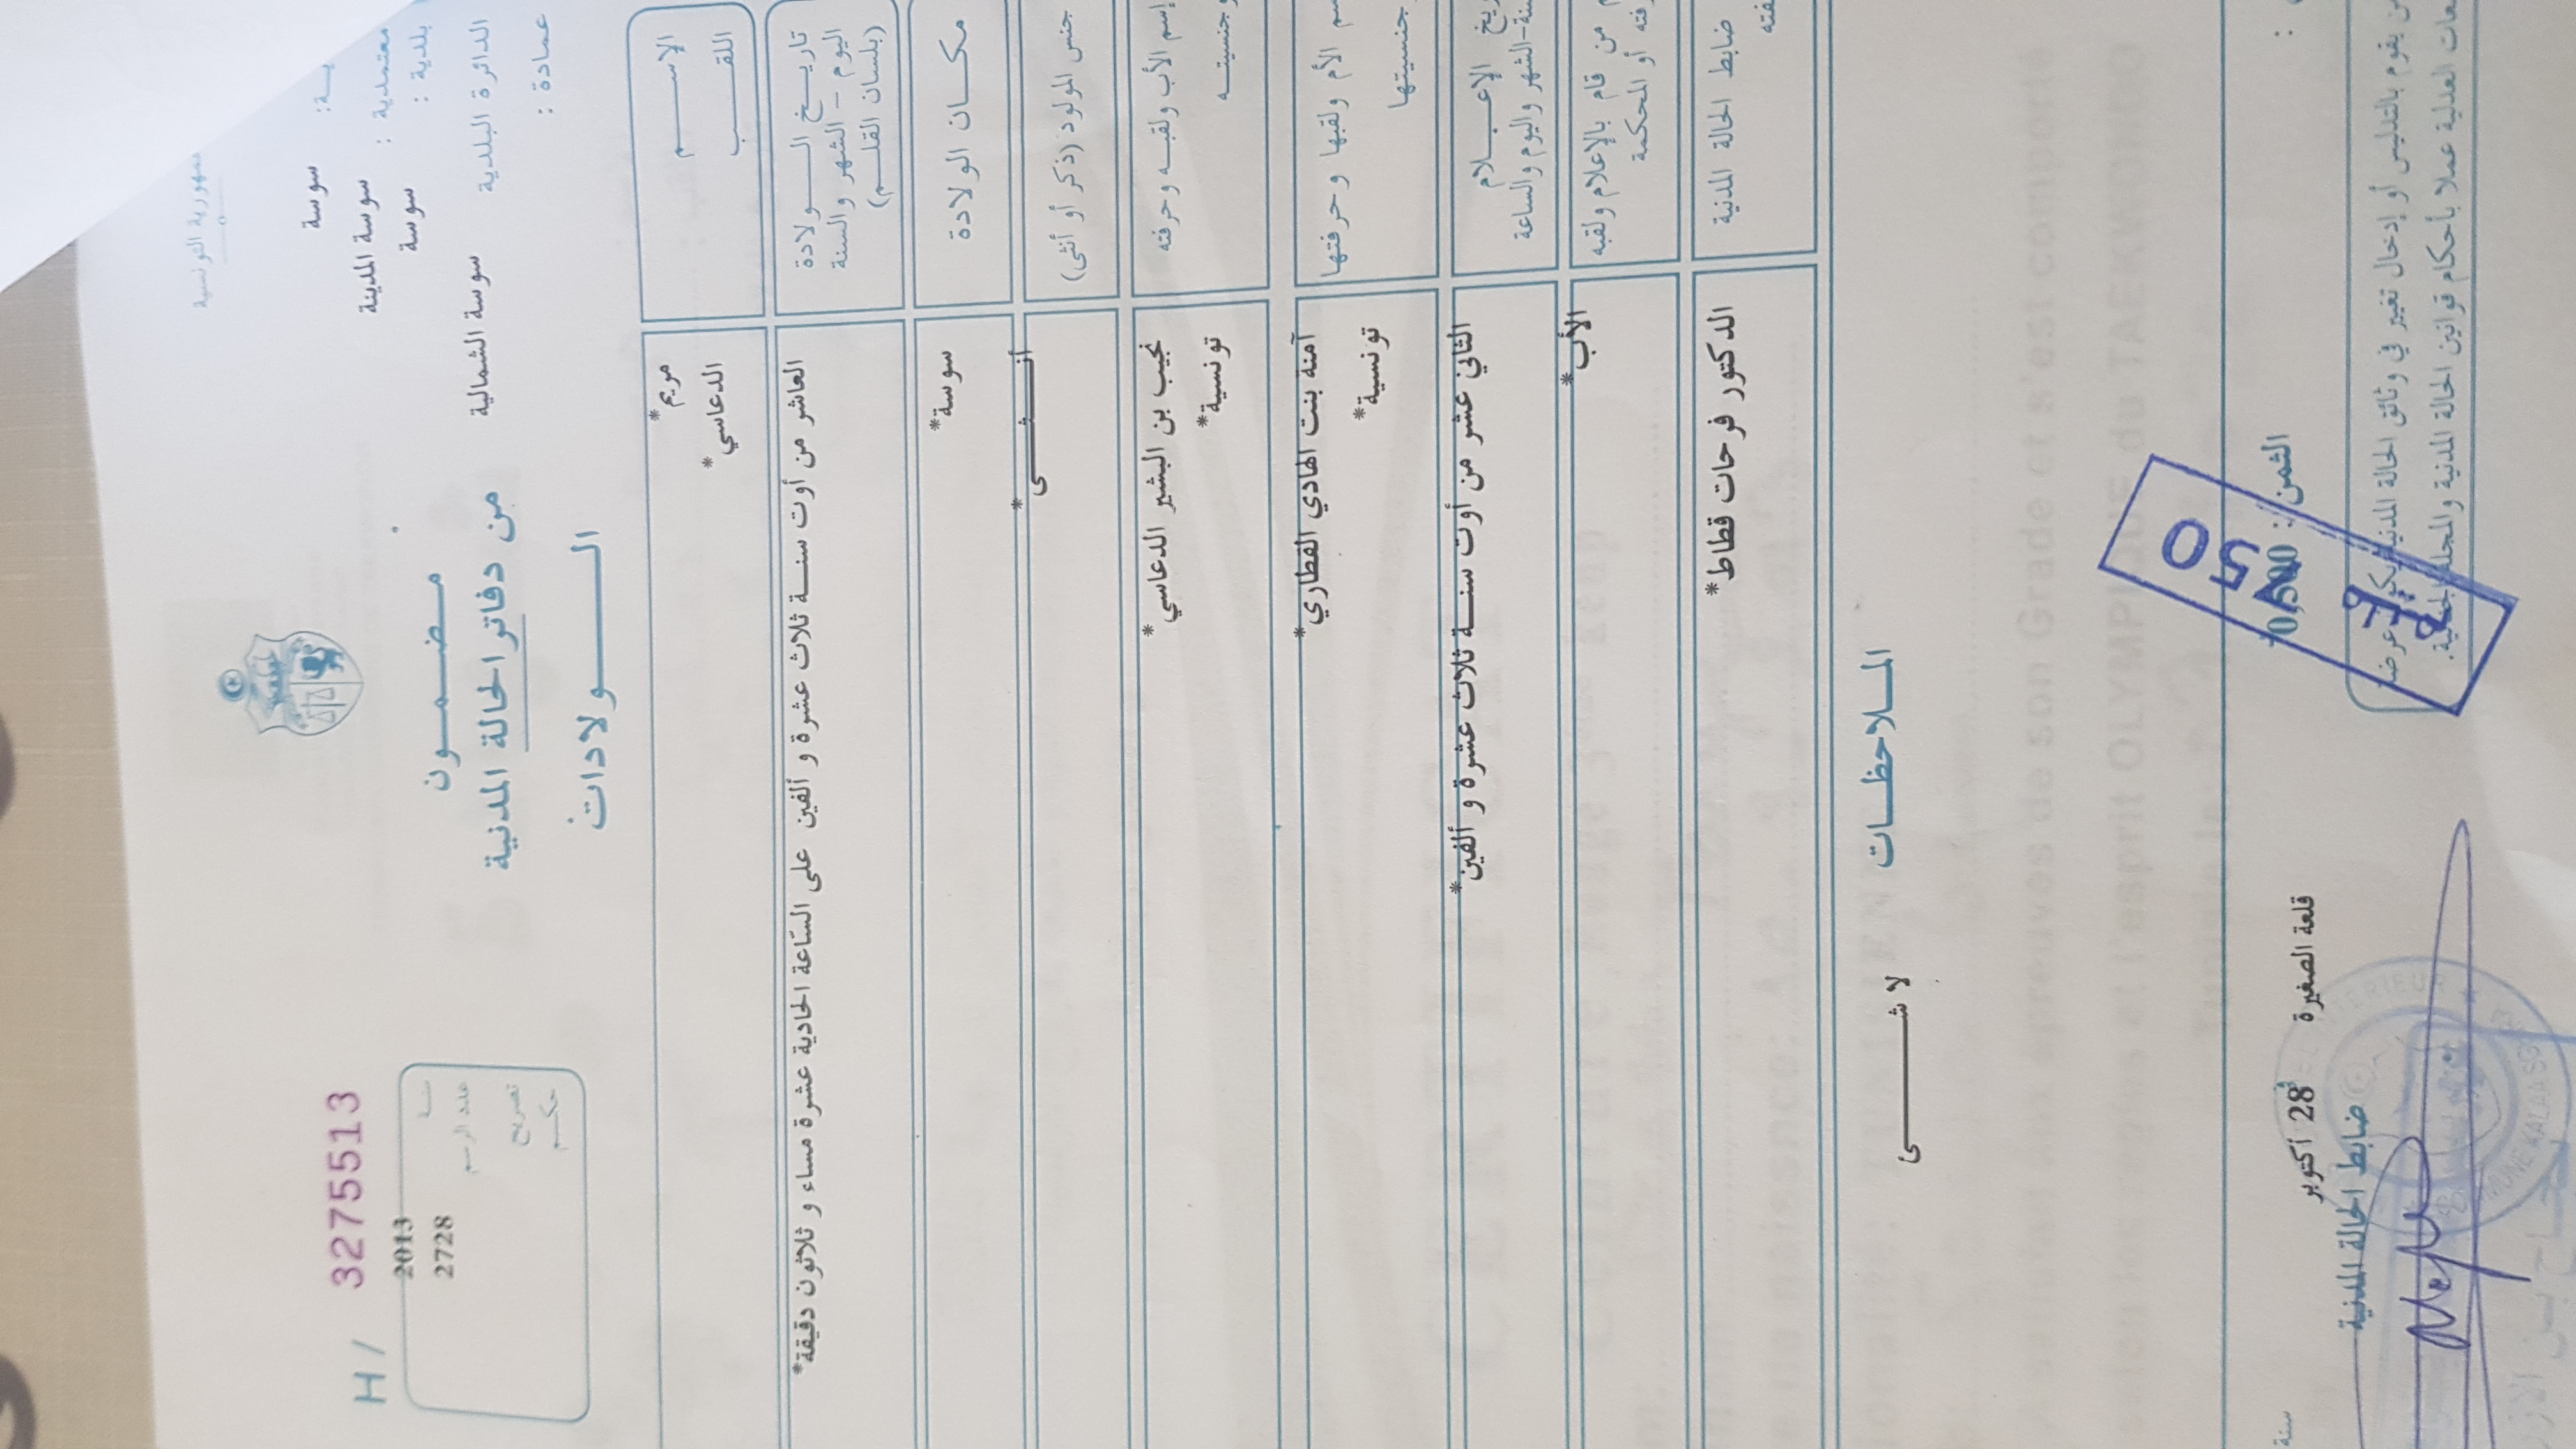 الجمهورية التونسية
سوسة
معتمدية : سوسة المدينة
بلدية : سوسة
الدائرة البلدية سوسة الشمالية
عمادة :
مضمون
من دفاتر الحالة المدنية
الولادات
H / 32755513
سنة 2013
عدد الرسم 2728
تصريح
حكم
الإسم مريم*
اللقب الدعاسي*
تاريخ الولادة
اليوم - الشهر والسنة
(بلسان القلم)
العاشر من أوت سنة ثلاث عشرة و ألفين على السّاعة الحادية عشرة مساء و ثلاثون دقيقة*
مكان الولادة سوسة*
جنس المولود (ذكر أو أنثى) أنثى*
إسم الأب ولقبه وحرفته نجيب بن البشير الدعاسي*
وجنسيته تونسية*
الأم ولقبها وحرفتها آمنة بنت الهادي القطاري*
جنسيتها تونسية*
الإعلام
الشهر واليوم والساعة
الثاني عشر من أوت سنة ثلاث عشرة و ألفين*
من قام بالإعلام ولقبه
أو المحكمة
الأب*
ضابط الحالة المدنية الدكتور فرحات قطاط*
الملاحظات
لا شئ
الثمن :
750
قلعة الصغيرة 28 أكتوبر
سنة
ضابط الحالة المدنية
يقوم بالتدليس أو إدخال تغيير في وثائق الحالة المدنية
العدلية عملا بأحكام قوانين الحالة المدنية والمجلة